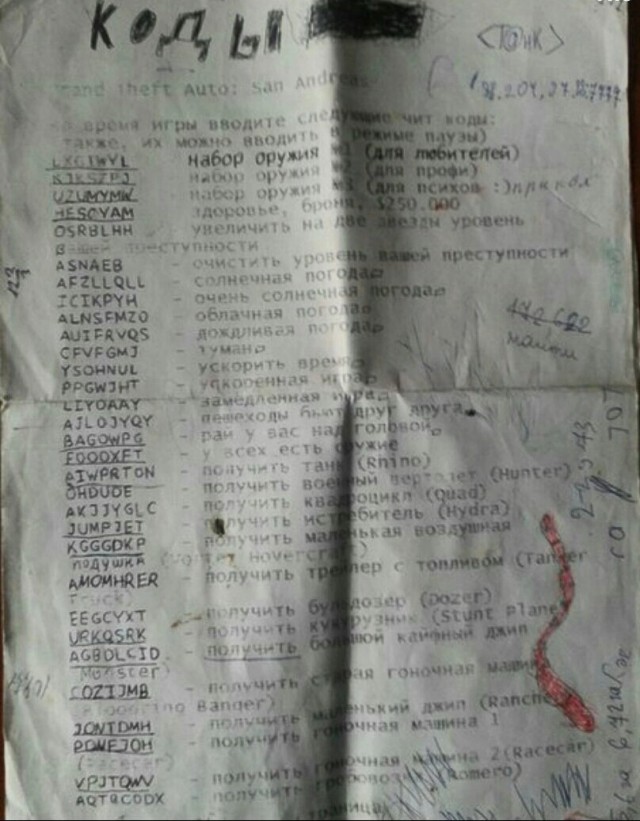 КОДЫ
<ТАНК>
Grand Theft Auto: San Andreas
во время игры вводите следующие чит коды:
также, их можно вводить в режиме паузы)
LXGIWYL набор оружия №1 (для любителей)
KJKSZPJ - набор оружия №2 (для профи)
UZUMYMW - набор оружия №3 (для психов :) прикол
HESOYAM - здоровье, броня, $250.000
OSRBLHH - увеличить на две звезды уровень
вашей преступности
123
ASNAEB - очистить уровень вашей преступности
AFZLLQLL - солнечная погода
ICIKPYH - очень солнечная погода
ALNSFMZO - облачная погода
AUIFRVQS - дождливая погода
CFVFGMJ - туман
YSOHNUL - ускорить время
PPGWJHT - ускоренная игра
LIYOAAY - замедленная игра
AJLOJYQY - пешеходы бьют друг друга
BAGOWPG - рай у вас над головой
FOOOXFT - у всех есть оружие
AIWPRTON - получить танк (Rhino)
OHDUDE - получить военный вертолет (Hunter)
AKJJYGLC - получить квадроцикл (Quad)
JUMPJET - получить истребитель (Hydra)
KGGGDKP - получить маленькая воздушная
подушка (Vortex Hovercraft)
AMOMHRER - получить трейлер с топливом (Tanker
Truck)
EEGCYXT - получить бульдозер (Dozer)
URKQSRK - получить кукурузник (Stunt Plane
AGBDLCID - получить большой кайфный джип
(Monster)
CQZIJMB - получить старая гоночная машина
(Bloodring Banger)
JQNTDMH - получить маленький джип (Ranche
PDNEJOH - получить гоночная машина 1
(Racecar)
VPJTQWV - получить гоночная машина 2(Racecar)
AQTQCODX - получить гробовоз (Romero)